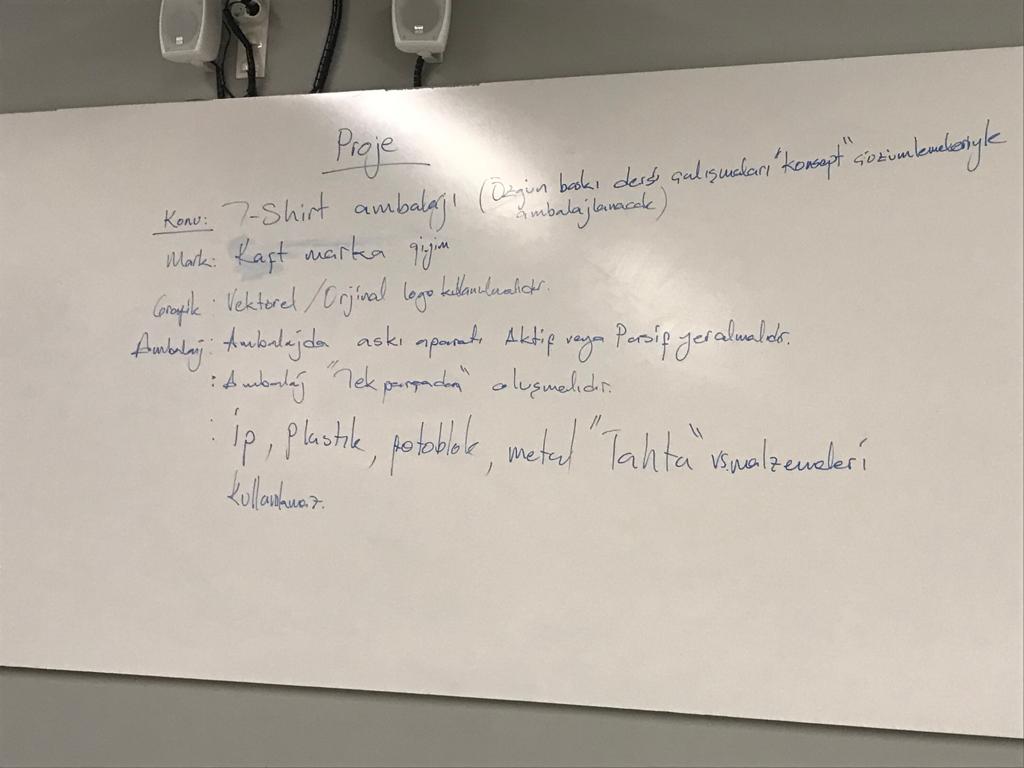 Proje
Konu: T-Shirt ambalajı (Özgün baskı dersi çalışmaları "konsept" çözümlemeleriyle
ambalajlanacak)
Mark: Kaft marka giyim
Grafik: Vektorel / Orjinal logo kullanılmalıdır.
Ambalaj: Ambalajda askı aparatı Aktif veya Pasif yer almalıdır.
: Ambalaj "Tek parçadan" oluşmelidir.
: İp, plastik, potoblok, metal "Tahta" vs malzemeleri
kullanılmaz.